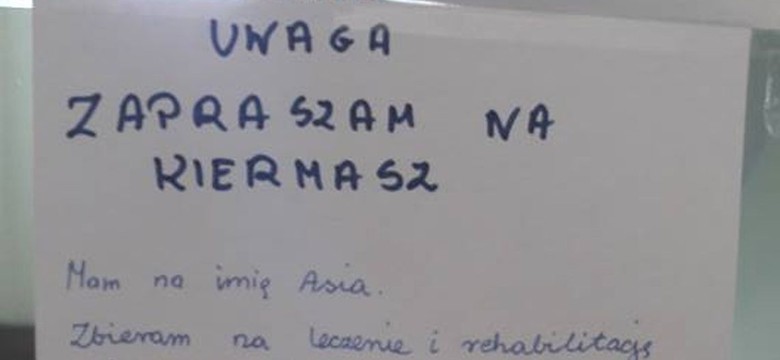 UWAGA
ZAPRASZAM NA
KIERMASZ
Mam na imię Asia.
Zbieram na leczenie i rehabilitację